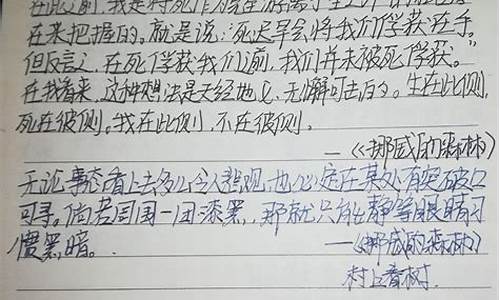 在此之前，我是将死作为完全游离于生之外的独立存
在来把握的。就是说："死迟早会将我们俘获在手。
但反言之，在死俘获我们之前，我们并未被死俘获。"
在我看来，这种想法是天经地义、无懈可击的。生在此侧，
死在彼侧。我在此侧，不在彼侧。
——《挪威的森林》
无论事态看上去多么令人悲观，也必定在某处有突破口
可寻。倘若周围一团漆黑，那就只能静等眼睛习
惯黑暗。
——《挪威的森林》
村上春树